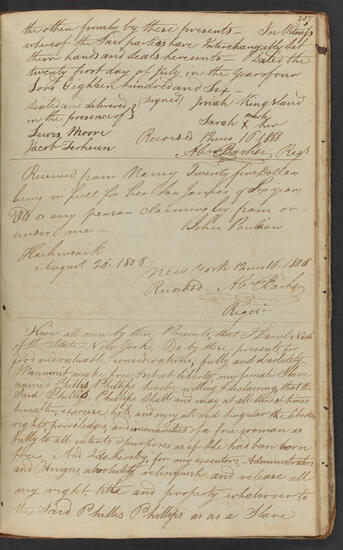 257
the other firmly by these presents – In Witness
whereof the Said parties have Interchangably Set
their hands and Seals hereunto – Dated the
twenty first day of July in the year of our
Lord Eighteen hundred and Six –
Sealed and delivered } (Signed) Josiah Kingsland
in the presence of } Sarah X her mark
Lewis Moore Recorded 16 1808
Jacob Terheun Regr
Received from Nanny Twenty five Dollars
being in full for her Son Jasper of
or any pearson claiming by from or
under me – John Paulisan
Hackinsack
August 25. 1808
New York 16. 1808
Recorded
Regr
Know all men by these Presents, that I Nash
of the State New York. Do by these presents for
good and valuable considerations, fully and absolutely
Manumit make free, Set at liberty, my female Slave
named Phillis Phillips hereby willing & declaring, that the
Said Phillis Phillips Shall and may at all times & times
hereafter, exercise, hold, and enjoy all and Singular the liberties
rights, priviledges, and immunities of a free woman as
fully to all intents & purposes as if She had been born
free. And I do hereby, for my executors, Administrators
and Assigns, absolutely relinquish and release all
my right, title and property whatsoever to
the Said Phillis Phillips as as a Slave